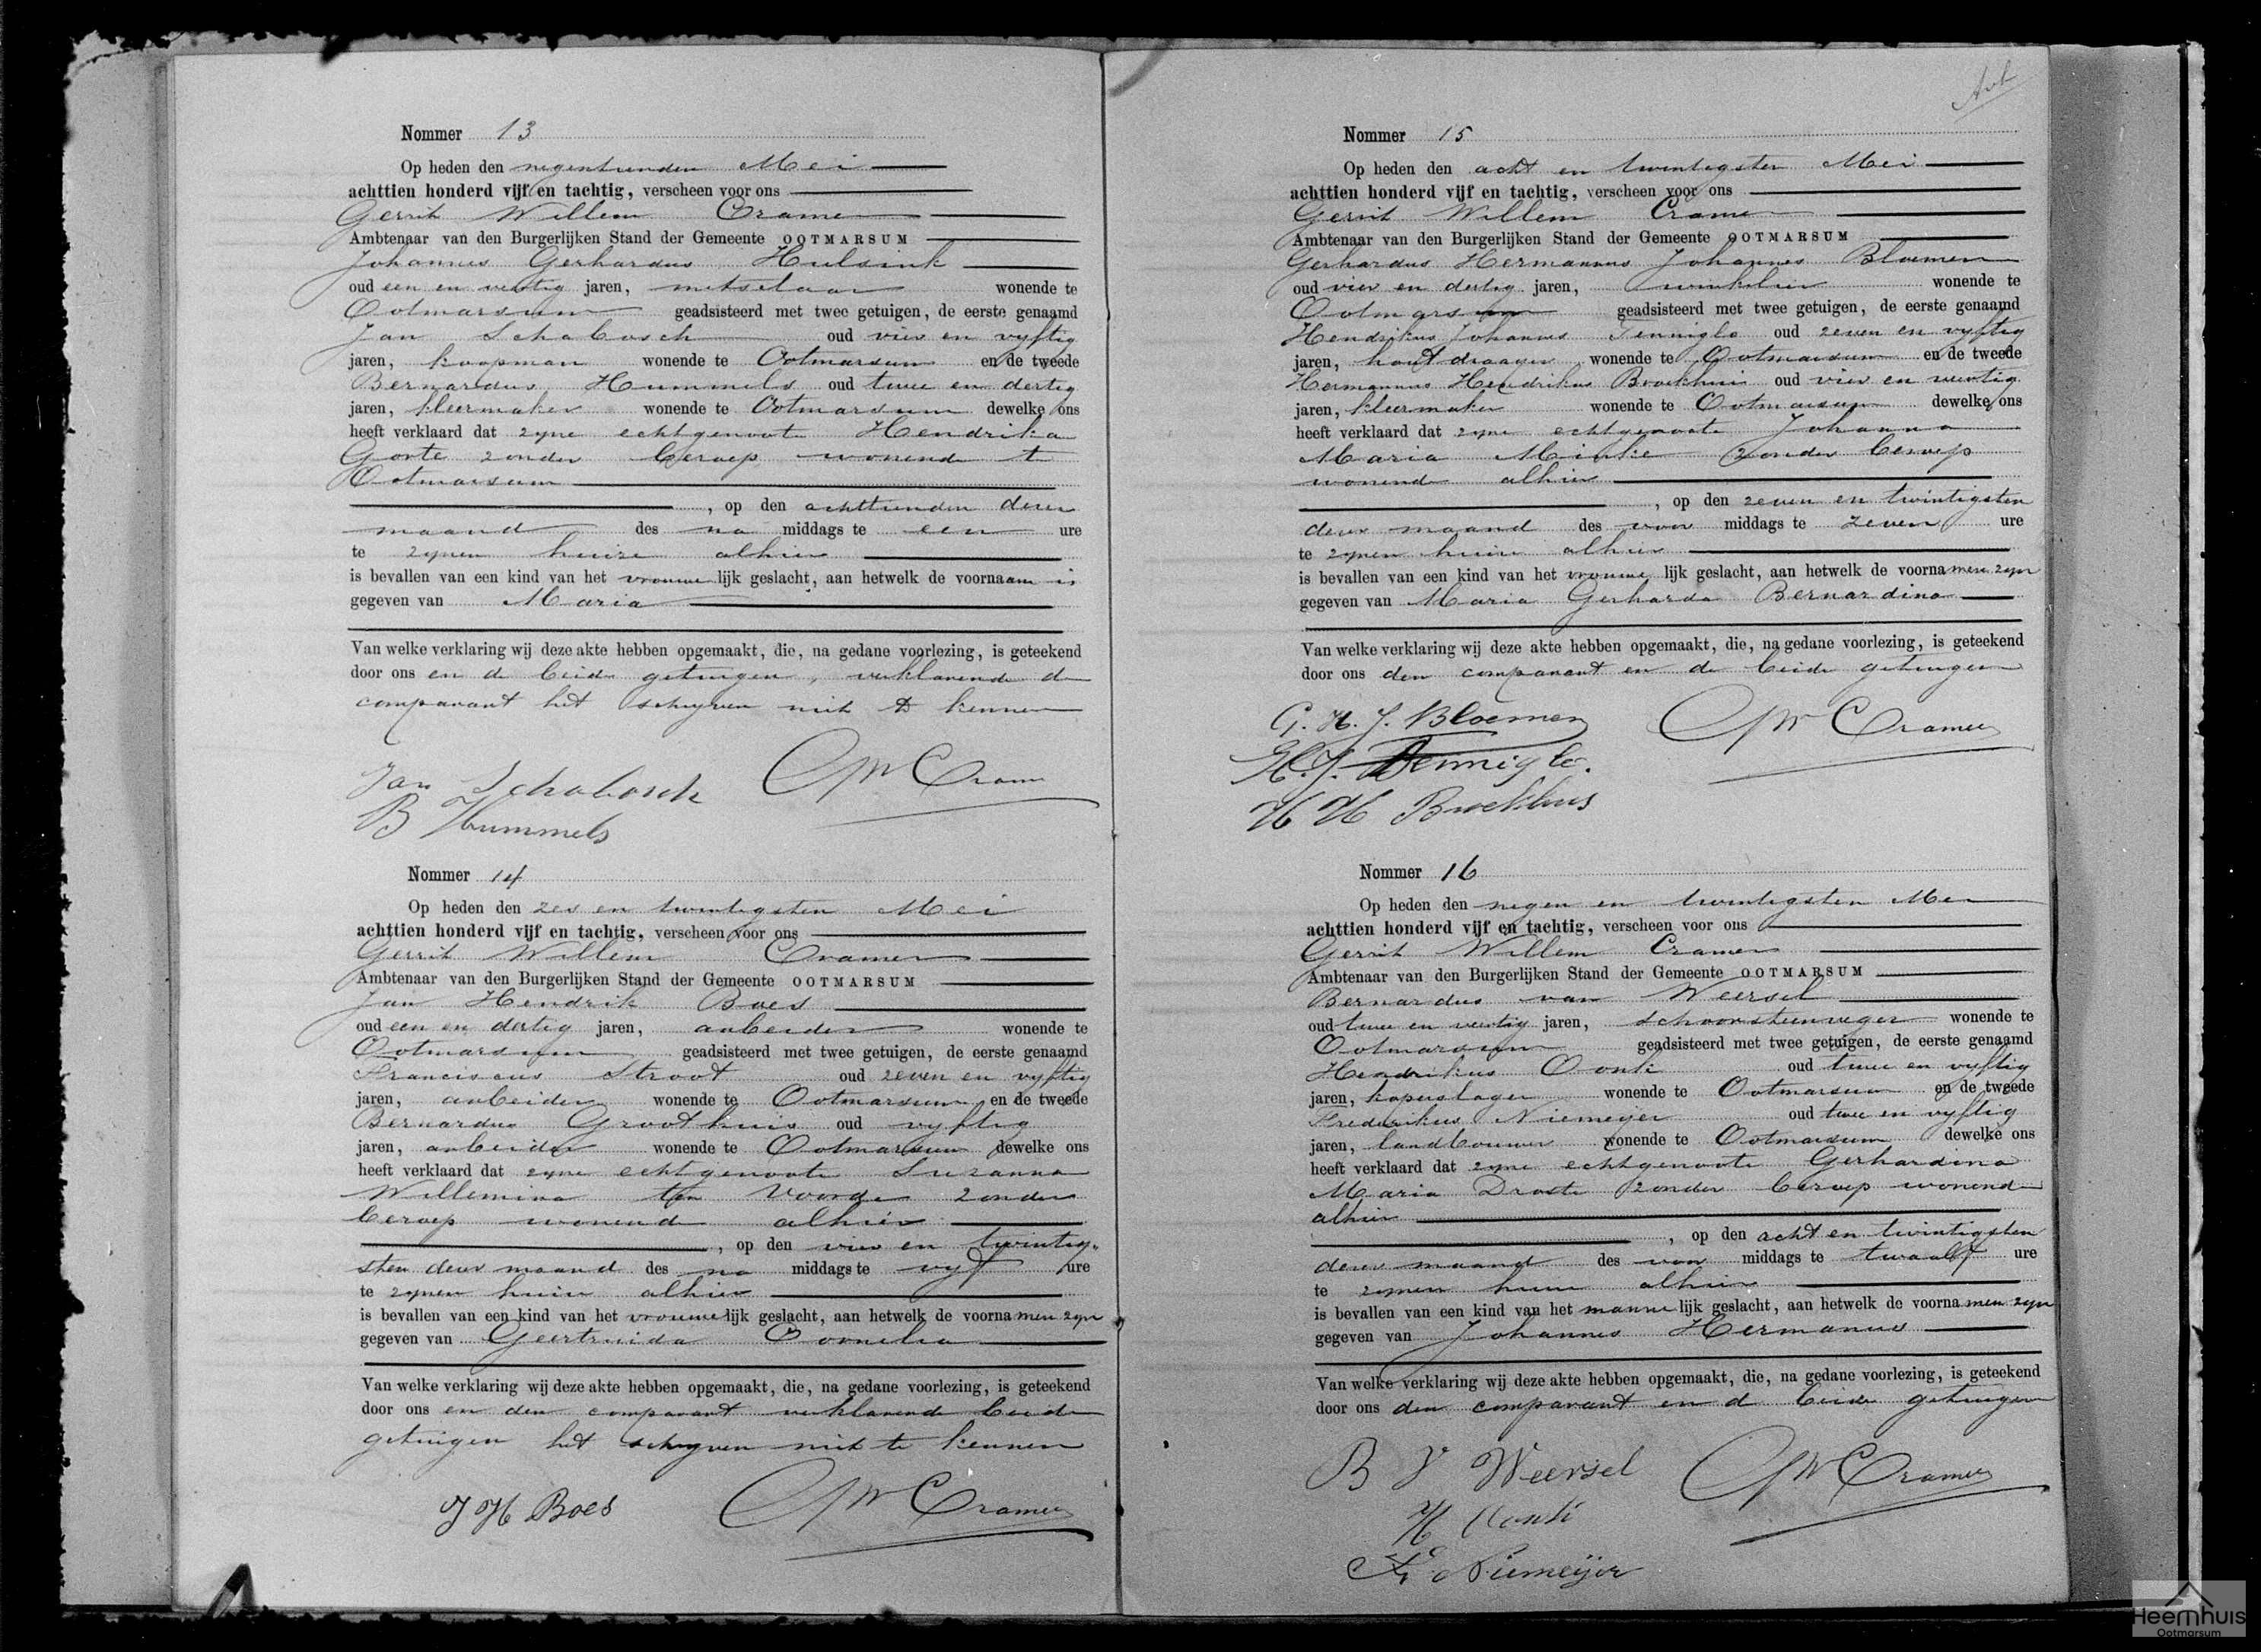 Nommer 13
Op heden den negentienden Mei
achttien honderd vijf en tachtig, verscheen voor ons
Gerrit Willem Cramer
Ambtenaar van den Burgerlijken Stand der Gemeente OOTMARSUM
Johannes Gerhardus Hulsink
oud een en veertig jaren, metselaar wonende te
Ootmarsum geadsisteerd met twee getuigen, de eerste genaamd
Jan Schabosch oud vier en vyftig
jaren, koopman wonende te Ootmarsum en de tweede
Bernardus Hummels oud twee en dertig
jaren, kleermaker wonende te Ootmarsum dewelke ons
heeft verklaard dat zyne echtgenoote Hendrika
Gorte zonder beroep wonende te
Ootmarsum
, op den achttienden dezer
maand des na middags te een ure
te zynen huize alhier
is bevallen van een kind van het vrouwelijk geslacht, aan hetwelk de voornaam is
gegeven van Maria
Van welke verklaring wij deze akte hebben opgemaakt, die, na gedane voorlezing, is geteekend
door ons en de beide getuigen, verklarende de
comparant het schryven niet te kennen
Jan Schabosch GW Cramer
B Hummels
Nommer 14
Op heden den zes en twintigsten Mei
achttien honderd vijf en tachtig, verscheen voor ons
Gerrit Willem Cramer
Ambtenaar van den Burgerlijken Stand der Gemeente OOTMARSUM
Jan Hendrik Boes
oud een en dertig jaren, arbeider wonende te
Ootmarsum geadsisteerd met twee getuigen, de eerste genaamd
Franciscus Stroot oud zeven en vyftig
jaren, arbeider wonende te Ootmarsum en de tweede
Bernardus Groothuis oud vyftig
jaren, arbeider wonende te Ootmarsum dewelke ons
heeft verklaard dat zyne echtgenoote Suzanna
Willemina ten Voorde zonder
beroep wonende alhier
, op den vier en twintig-
sten dezer maand des na middags te vyf ure
te zynen huize alhier
is bevallen van een kind van het vrouwelijk geslacht, aan hetwelk de voornamen zyn
gegeven van Geertruida Cornelia
Van welke verklaring wij deze akte hebben opgemaakt, die, na gedane voorlezing, is geteekend
door ons en den comparant verklarende beide
getuigen het schryven niet te kennen
J H Boes GW Cramer
Nommer 15
Op heden den acht en twintigsten Mei
achttien honderd vijf en tachtig, verscheen voor ons
Gerrit Willem Cramer
Ambtenaar van den Burgerlijken Stand der Gemeente OOTMARSUM
Gerhardus Hermannus Johannes Bloemen
oud vier en dertig jaren, winkelier wonende te
Ootmarsum geadsisteerd met twee getuigen, de eerste genaamd
Hendrikus Johannes Tenniglo oud zeven en vyftig
jaren, houtdraager wonende te Ootmarsum en de tweede
Hermannus Hendrikus Broekhuis oud vier en veertig
jaren, kleermaker wonende te Ootmarsum dewelke ons
heeft verklaard dat zyne echtgenoote Johanna
Maria Meinke zonder beroep
wonende alhier
, op den zeven en twintigsten
dezer maand des voor middags te zeven ure
te zynen huize alhier
is bevallen van een kind van het vrouwelijk geslacht, aan hetwelk de voornamen zyn
gegeven van Maria Gerharda Bernardina
Van welke verklaring wij deze akte hebben opgemaakt, die, na gedane voorlezing, is geteekend
door ons den comparant en de beide getuigen
G. H. J. Bloemen GW Cramer
H. J. Tenniglo.
H H Broekhuis
Nommer 16
Op heden den negen en twintigsten Mei
achttien honderd vijf en tachtig, verscheen voor ons
Gerrit Willem Cramer
Ambtenaar van den Burgerlijken Stand der Gemeente OOTMARSUM
Bernardus van Weersel
oud twee en veertig jaren, schoorsteenveger wonende te
Ootmarsum geadsisteerd met twee getuigen, de eerste genaamd
Hendrikus Oonk oud twee en vyftig
jaren, koperslager wonende te Ootmarsum en de tweede
Frederikus Niemeyer oud twee en vyftig
jaren, landbouwer wonende te Ootmarsum dewelke ons
heeft verklaard dat zyne echtgenoote Gerhardina
Maria Droste zonder beroep wonende
alhier
, op den acht en twintigsten
dezer maand des voor middags te twaalf ure
te zynen huize alhier
is bevallen van een kind van het mannelijk geslacht, aan hetwelk de voornamen zyn
gegeven van Johannes Hermanus
Van welke verklaring wij deze akte hebben opgemaakt, die, na gedane voorlezing, is geteekend
door ons den comparant en de beide getuigen
B V Weersel GW Cramer
H Oonk
F Niemeijer
Heemhuis
Ootmarsum